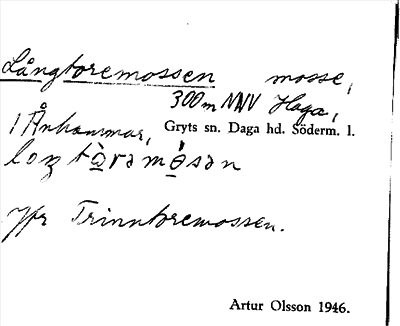 Långtoremossen mosse,
300 m NNV Haga,
i Ånhammar, Gryts sn. Daga hd. Söderm. l.
loŋ tὰrəmǿsən
Jfr Trinntoremossen.
Artur Olsson 1946.